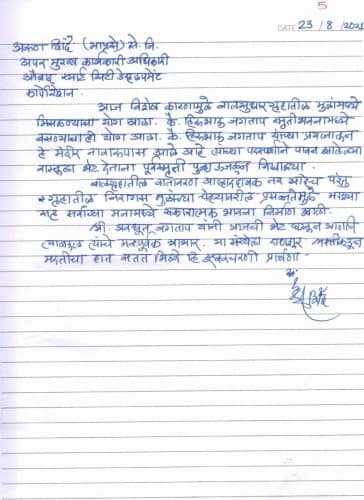 5
DATE 23 / 8 / 2021
अरुण शिंदे (भाप्रसे) से. नि.
अपर मुख्य कार्यकारी अधिकारी
स्मार्ट सिटी डेव्हलपमेंट
कॉर्पोरेशन.
आज विशेष कारणामुळे बालसुधार गृहातील मुलांमध्ये
मिसळण्याचा योग आला. कै. हिरूभाऊ जगताप स्मृतीभवनामध्ये
बसण्याचाही योग आला. कै. हिरूभाऊ जगताप यांच्या प्रयत्नातून
हे मंदिर नावारूपास आले आहे त्यांच्या पावन झालेल्या
वास्तूला भेट देताना पूर्वस्मृती पुन्हा
बालगृहातील वातावरण आल्हाददायक तर आहेच परंतु
गृहातील निरागस मुलांच्या चेहऱ्यावरील प्रसन्नतेमुळे माझ्या
सह सर्वांच्या मनामध्ये सकारात्मक भावना निर्माण झाली.
श्री. अवधूत जगताप यांनी आजची भेट घडवून आणली
त्याबद्दल त्यांचे मनःपूर्वक आभार. या संस्थेला
मदतीचा हात सतत मिळो हि ईश्वरचरणी प्रार्थना